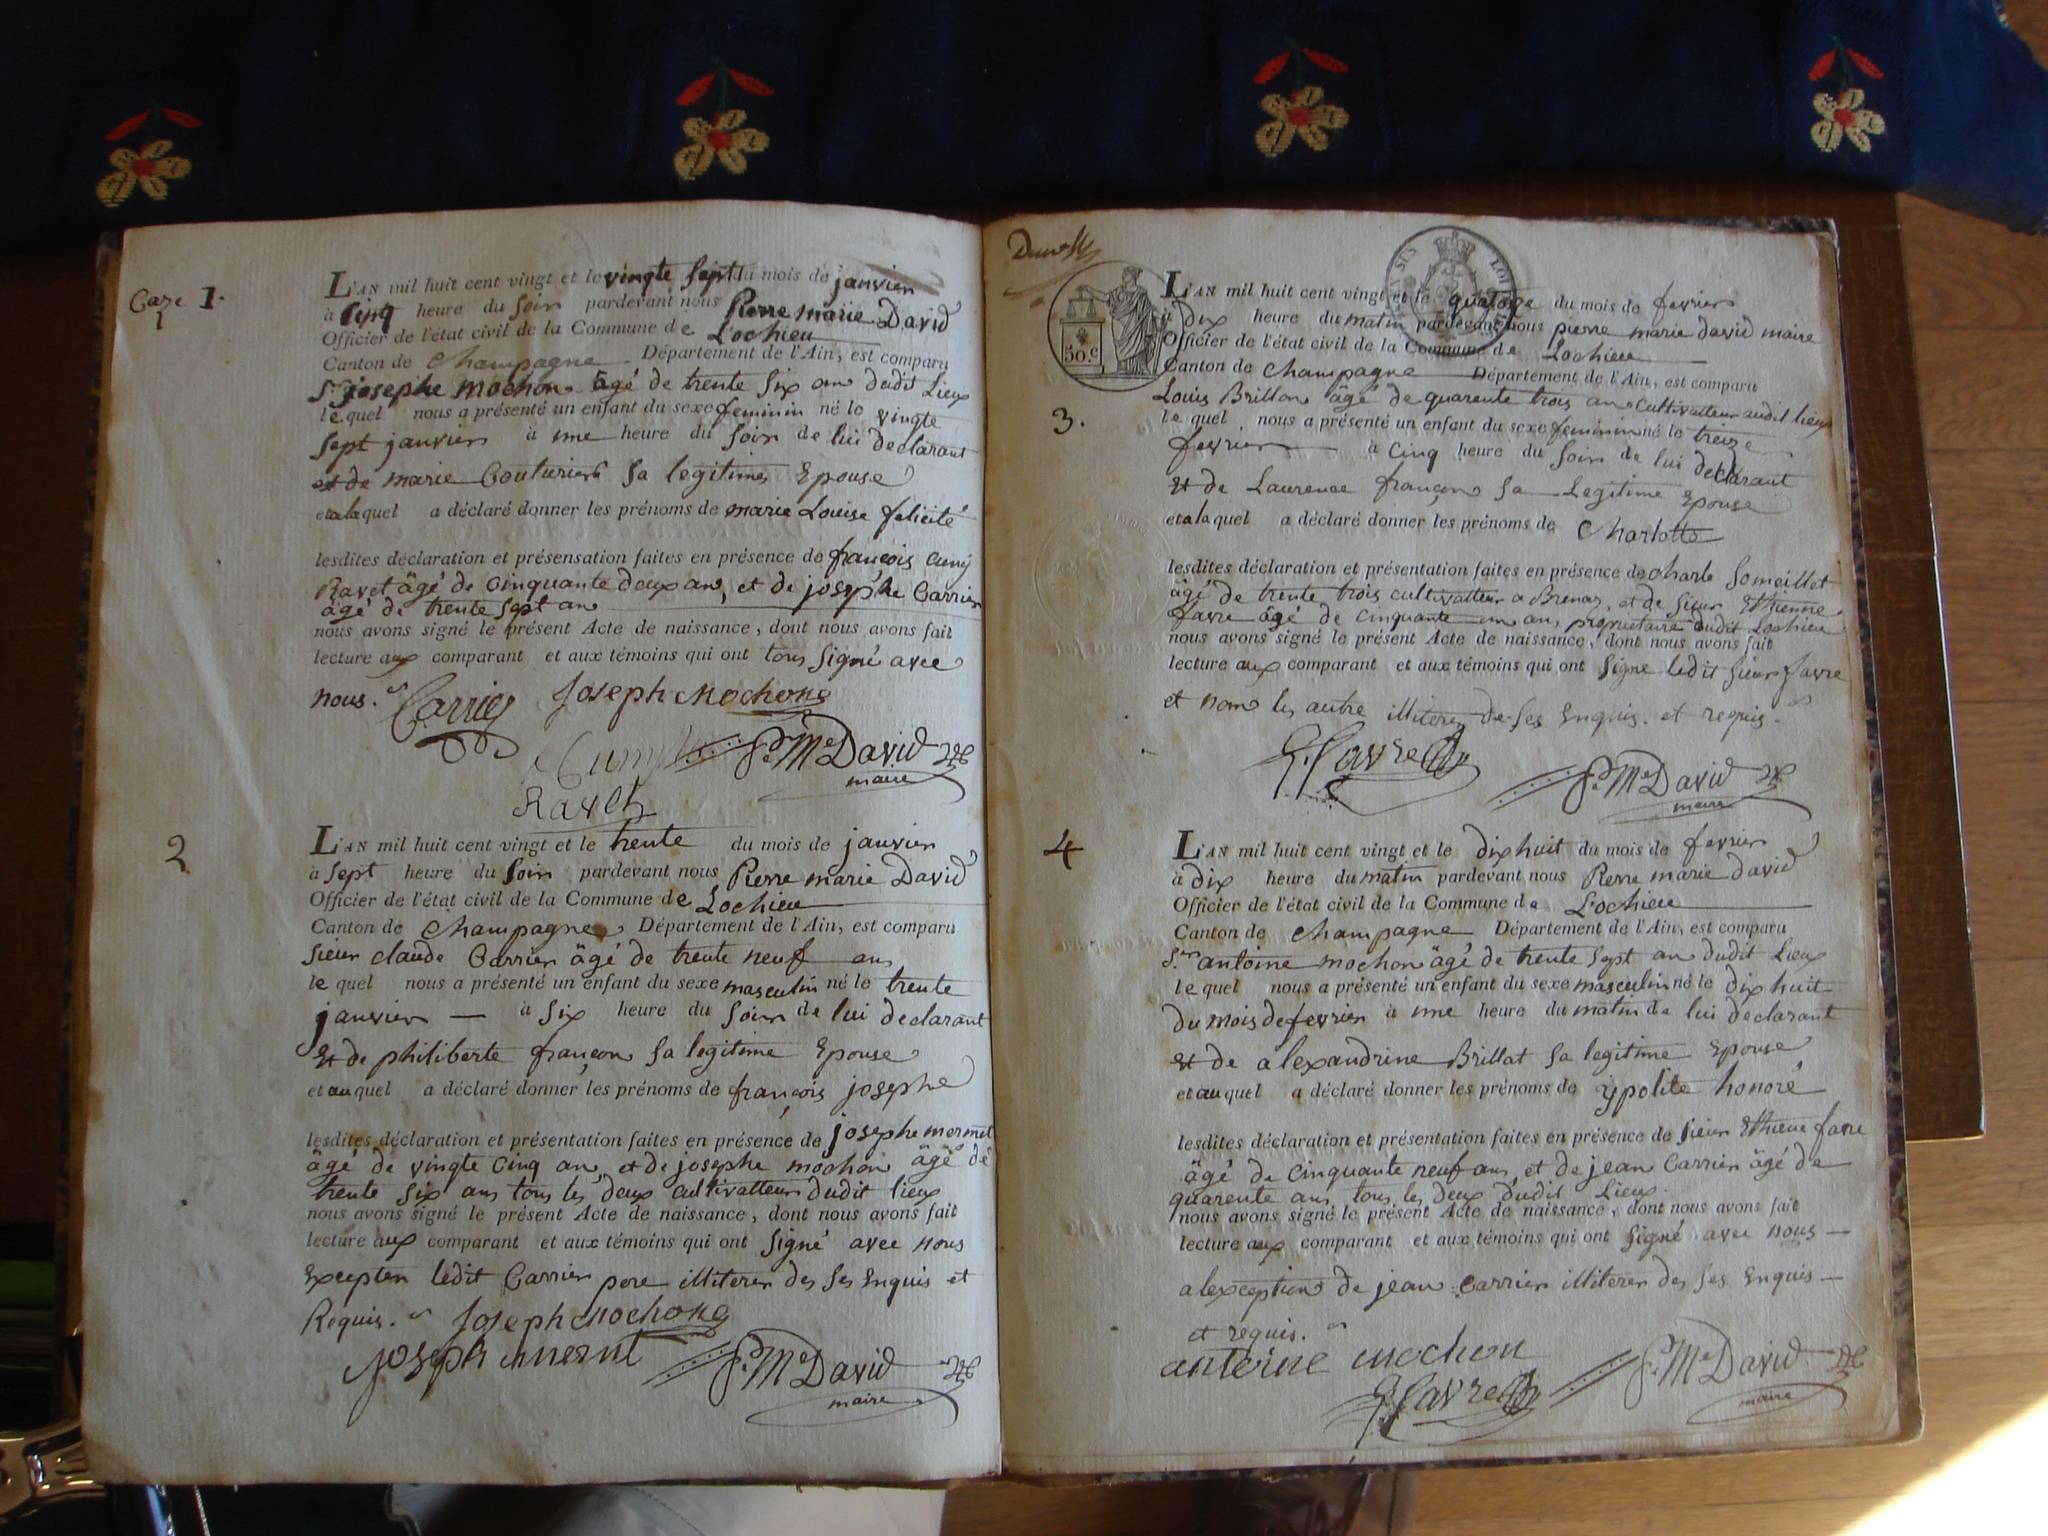 Caze 1.
1
L'AN mil huit cent vingt et le vingte sept du mois de janvier
à Cinq heure du Soir pardevant nous Pierre marie David
Officier de l'état civil de la Commune de Lochieu
Canton de Champagne Département de l'Ain, est comparu
Sr. josephe mochon âgé de trente Six an dudit Lieux
le quel nous a présenté un enfant du sexe feminin né le vingte
Sept janvier à une heure du Soir de lui declarant
et de marie Couturier Sa legitime Epouse
et a la quel a déclaré donner les prénoms de marie Louise felicité
lesdites déclaration et présensation faites en présence de françois Cuny
Ravet âgé de Cinquante deux an, et de joséphe Carrier
âgé de trente Sept an
nous avons signé le présent Acte de naissance, dont nous avons fait
lecture aux comparant et aux témoins qui ont tous Signé avec
nous.
Carrier Joseph Mochong
P. Me David
maire
Ravet
2
L'AN mil huit cent vingt et le trente du mois de janvier
à Sept heure du Soir pardevant nous Pierre marie David
Officier de l'état civil de la Commune de Lochieu
Canton de Champagne Département de l'Ain, est comparu
Sieur claude Carrier âgé de trente neuf ans
le quel nous a présenté un enfant du sexe masculin né le trente
janvier à Six heure du Soir de lui declarant
Et de philiberte françon Sa legitime Epouse
et au quel a déclaré donner les prénoms de françois josephe
lesdites déclaration et présentation faites en présence de josephe mermet
âgé de vingte Cinq an, et de josephe mochon âgé de
trente Six ans tous les deux cultivatteur dudit lieux
nous avons signé le présent Acte de naissance, dont nous avons fait
lecture aux comparant et aux témoins qui ont Signé avec nous
Excepter ledit Carrier pere illiterer des Ses Enquis et
Requis. Joseph Mochong
joseph mermt P. Me David
maire
L'AN mil huit cent vingt et le quatorze du mois de fevrier
à Dix heure du matin pardevant nous pierre marie david maire
Officier de l'état civil de la Commune de Lochieu
50.c
Canton de Champagne Département de l'Ain, est comparu
Louis Brillon âgé de quarente trois an Cultivatteur audit lieux
3.
le quel nous a présenté un enfant du sexe feminin né le treize
fevrier à Cinq heure du Soir de lui declarant
Et de Laurence françon Sa Legitime Epouse
et a la quel a déclaré donner les prénoms de Charlotte
lesdites déclaration et présentation faites en présence de charle Someillet
âgé de trente trois cultivatteur a Brenaz, et de Sieur Ethienne
favre âgé de Cinquante un ans propriétaire dudit Lochieu
nous avons signé le présent Acte de naissance, dont nous avons fait
lecture aux comparant et aux témoins qui ont Signe ledit Sieur favre
et nom les autre illiterer de Ses Enquis. et requis.
E. Favre P. Me David
maire
4
L'AN mil huit cent vingt et le Dix huit du mois de fevrier
à Dix heure du matin pardevant nous Pierre marie david
Officier de l'état civil de la Commune de Lochieu
Canton de Champagne Département de l'Ain, est comparu
S.r antoine mochon âgé de trente Sept an dudit Lieux
le quel nous a présenté un enfant du sexe masculin né le Dix huit
Du mois de fevrier à une heure du matin de lui declarant
Et de alexandrine Brillat Sa legitime Epouse
et au quel a déclaré donner les prénoms de ypolite honoré
lesdites déclaration et présentation faites en présence de Sieur Ethiene favre
âgé de Cinquante neuf ans, et de jean Carrier âgé de
quarente ans tous les deux dudit Lieux.
nous avons signé le présent Acte de naissance, dont nous avons fait
lecture aux comparant et aux témoins qui ont Signé avec nous
a lexception de jean Carrier illiterer des Ses Enquis
et requis.
antoine mochon P. Me David
E. Favre maire